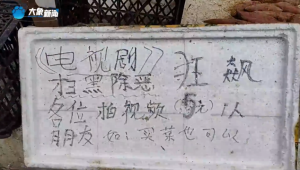 大象新闻
《电视剧》
扫黑除恶 狂飙
各位拍视频 5元 1人
朋友 如:买菜也可以